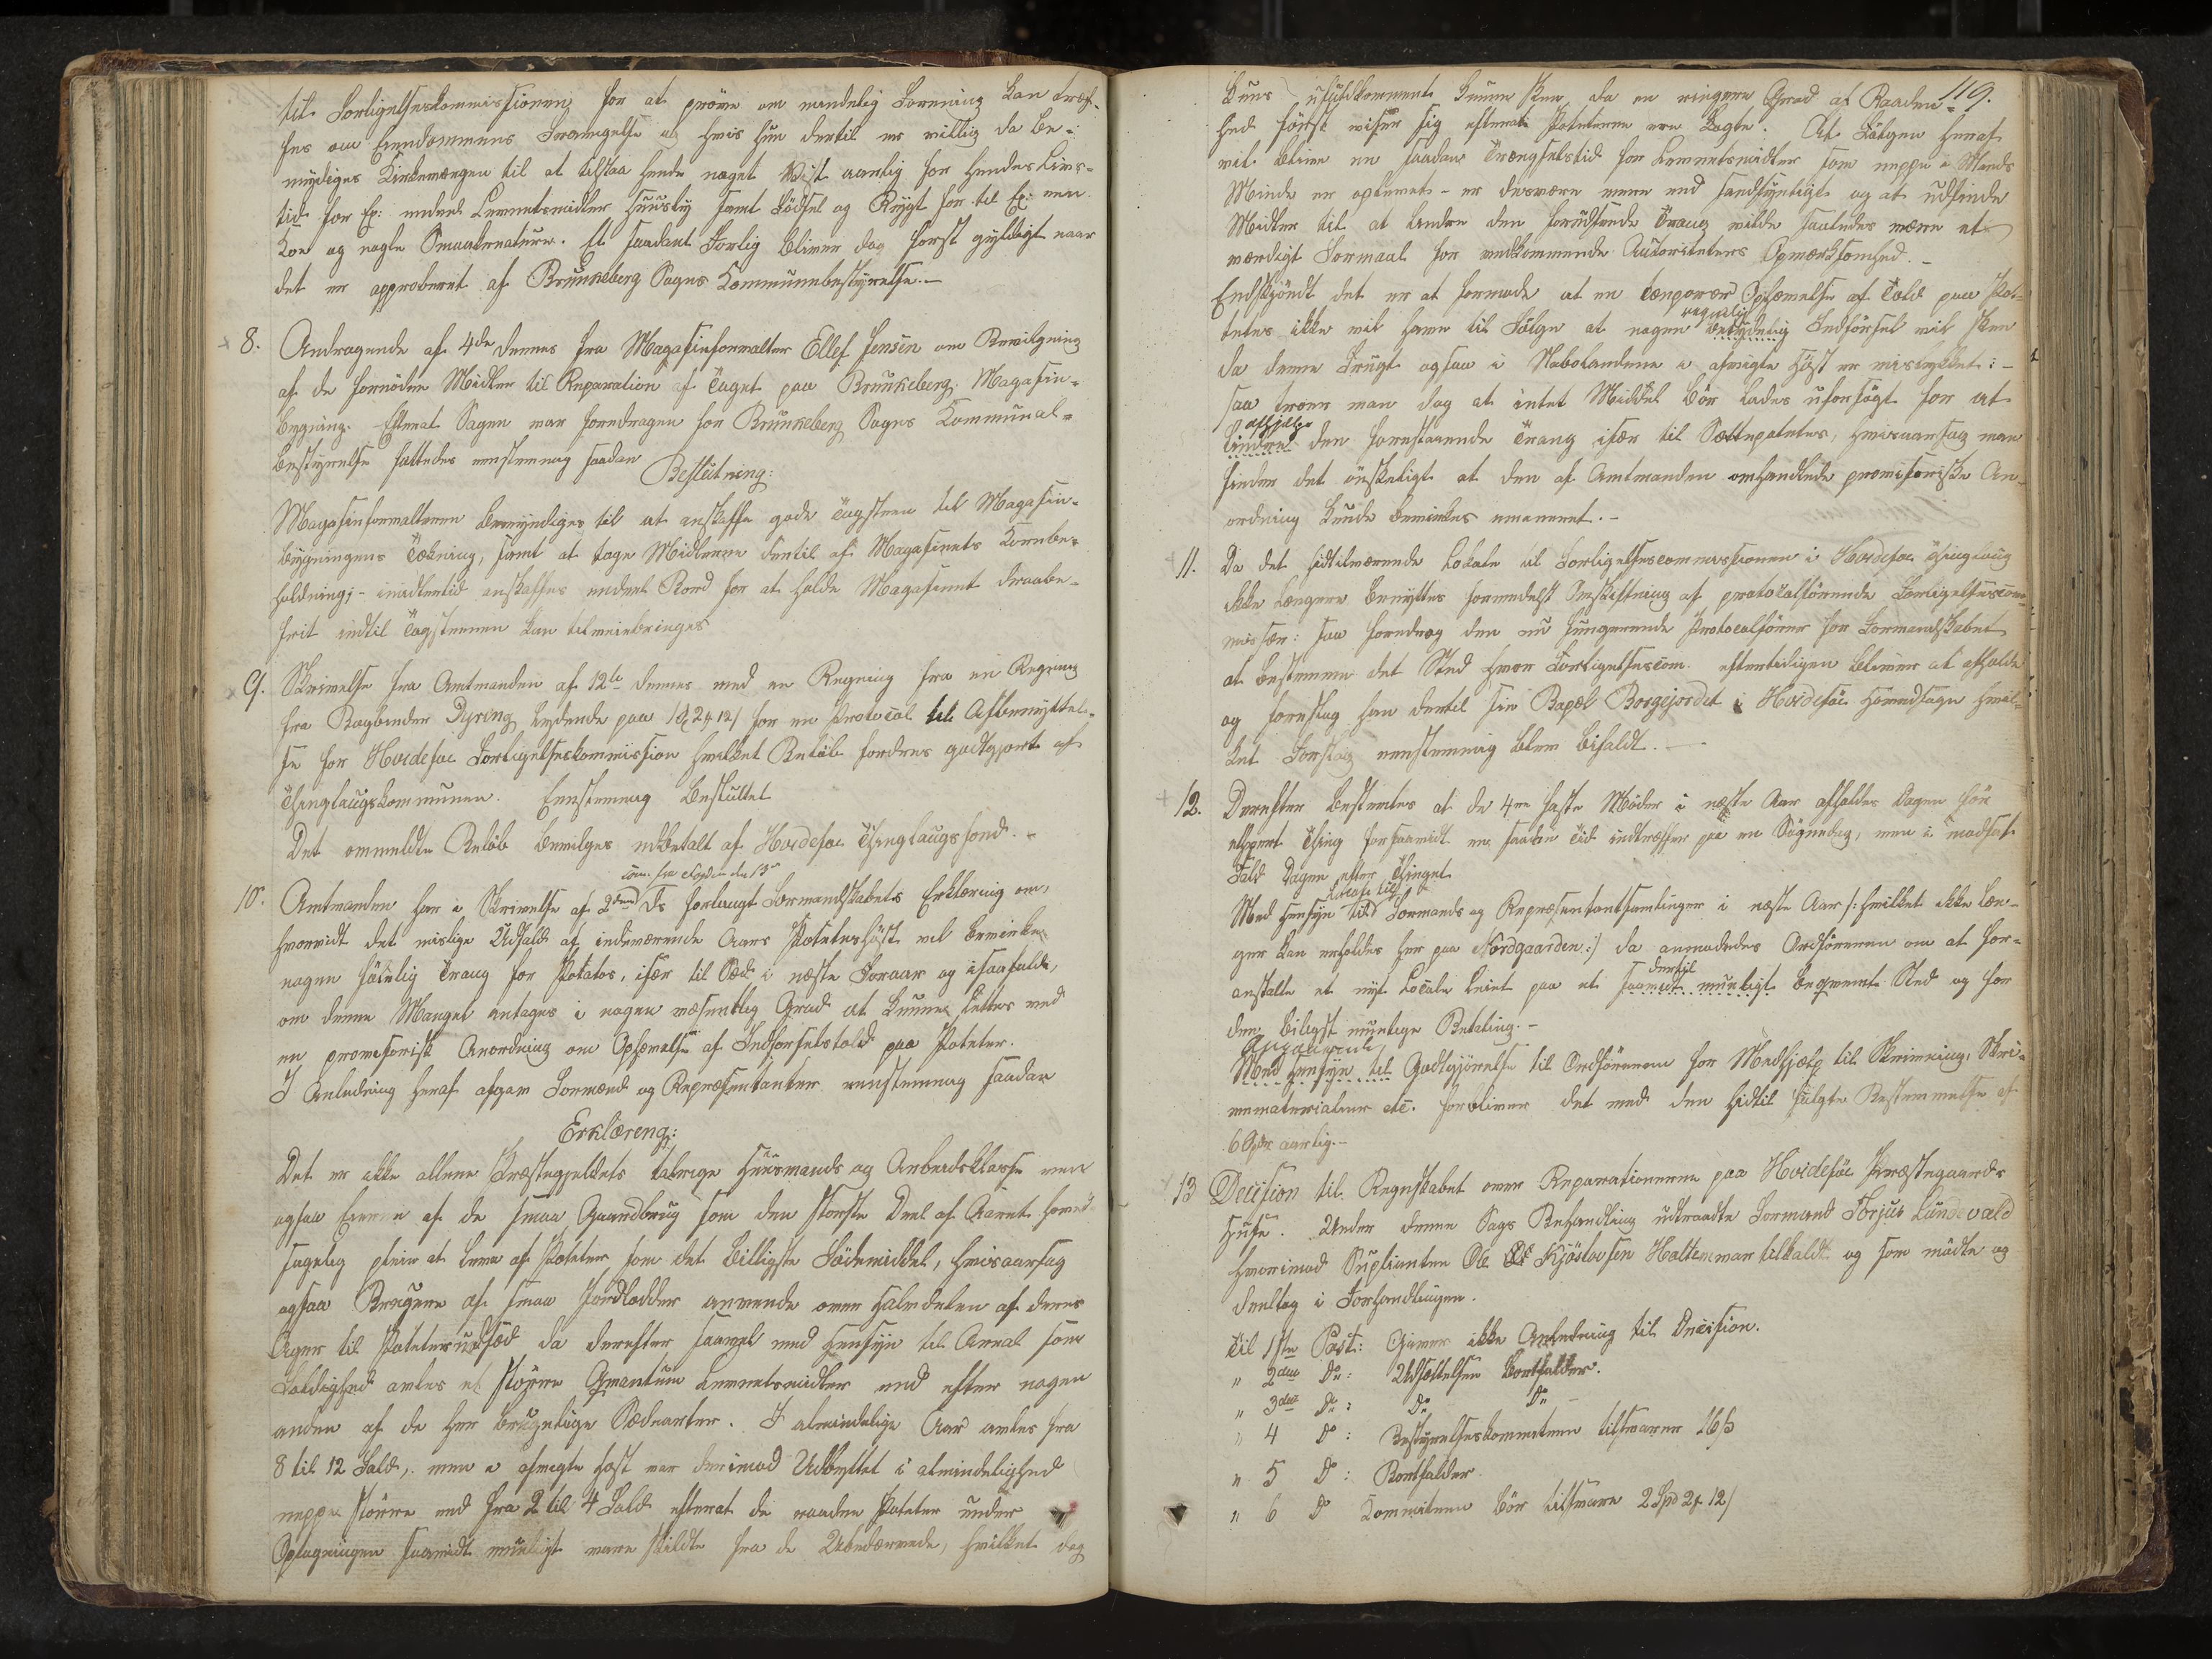 til Forligelseskommissionen for at prøve om mindelig Forening kan træf-
fes om Eiendommens Fravigelse og hvis hun dertil er villig da be-
myndiges Kirkeværgen til at tilstaa hende noget vist aarlig for hendes Livs-
tid for Ex: endeel Levnetsmidler Huusly samt Födsel og Røgt for til Ex: een
Koe og nogle Smaakreature. Et saadant Forlig bliver dog først gyldigt naar
det er approberet af Brunkeberg Sogns Kommunebestyrelse.-
8. Andragende af 4de dennes fra Magasinforvalter Ellef Jensen om Bevilgning
af de fornödne Midler til Reparation af Taget paa Brunkeberg Magasin-
bygning. Efterat Sagen var foredragen for Brunkeberg Sogns Kommunal-
bestyrelse fattedes eenstemmig saadan Beslutning:
Magasinforvalteren bemyndiges til at anskaffe gode Tagsteen til Magasin-
bygningens Tækning, samt at tage Midlerne dertil af Magasinets Kornbe-
holdning; - imidlertid anskaffes endeel Bord for at holde Magasinet draabe-
frit indtil Tagstenen kan tilveiebringes
9. Skrivelse fra Amtmanden af 12te dennes med en Regning fra en Regning
fra Bogbinder Dyring lydende paa 1 2 12 for en Protocol til Afbenyttel-
se for Hvideseie Forligelseskommission hvilket Beløb fordres godtgjort af
Thinglaugskommunen. Eenstemmig besluttet
Det ommeldte Beløb bevilges udbetalt af Hvideseie Thinglaugsfond. -
10. Amtmanden har i Skrivelse af 2den ds forlangt Formandskabets Erklæring om,
hvorvidt det mislige Udfald af indeværende Aars Potetehöst vil bevirke
nogen fölelig Trang for Potetes, især til Sæd i næste Foraar og isaafald,
om denne Mangel antages i nogen væsentlig Grad at kunne lettes ved
en provisorisk Anordning om Ophævelse af Indførselstold paa Poteter.
I Anledning heraf afgav Formænd og Repræsentanter eenstemmig saadan
Erklæring:
Det er ikke allene Præstegjeldets talrige Huusmands og Arbeidsklasse men
ogsaa Eierne af de smaa Gaardbrug som den største Deel af Aaret hoved-
sagelig pleie at leve af Poteter som det billigste Födemiddel, hvisaarsag
ogsaa Brugere af smaa Jordlodder anvende over Halvdelen af deres
Ager til Poteterudsæd da derefter saavel med Hensyn til Areal som
Foldighed avles et större Qvantum Levnetsmidler end efter nogen
anden af de her brugelige Sædearter. I almindelige Aar avles fra
8 til 12 Fold, men i afvigte Höst var derimod Udbyttet i almindelighed
neppe större end fra 2 til 4 Fold efterat de raadne Poteter under
Optagningen saavidt muligt vare skildte fra de Ubedærvede, hvilket dog
119.
kuns ufuldkomment kunne skee, da en ringere Grad af Raaden-
hed först viser sig efterat Poteterne ere kogte. At Fölgen heraf
vil blive en saadan Trængselstid for Levnetsmidler som neppe i Mands
Minde er oplevet - er desværre mere end sandsynligt og at udfinde
Midler til at lindre den forudseende Trang vilde saaledes være et
værdigt Formaal for vedkommende Autoriteters Opmærksomhed. -
Endskjöndt det er at formode at en temporær Ophævelse af Told paa Pot-
tetes ikke vil have til Fölge at nogen betydelig Indförsel vil skee
da denne Frugt ogsaa i Nabolandene i afvigte Höst er mislykket: -
saa troer man dog at intet Middel bör lades uforsögt for at
afhjælpe
lindre den forestaaende Trang især til Sættepotetes, hvisaarsag man
finder det önskeligt at den af Amtmanden omhandlede provisoriske An-
ordning kunde bevirkes emaneret. -
11. Da det hidtilværende Lokale til Forligelsescommissionen i Hvideseie Thinglaug
ikke længere benyttes formedelst Omskiftning af protocolförende Forligelsescom-
missær: saa foredrog den nu fungerende Protocolförer for Formandskabet
at bestemme det Sted hvor Forligelsescom. eftertidigen bliver at afholde
og foreslog han dertil sin Bopæl Borgejordet i Hvideseie Hovedsogn hvil-
ket Forslag eenstemmig blev bifaldt.
12. Derefter bestemtes at de 4re faste Møder i næste Aar afholdes Dagen för
ethvert Thing forsaavidt en saadan Tid indtræffer paa en Sögnedag, men i modsat
Fald Dagen efter Thinget.
Med Hensyn til Formands og Repræsentantsamlinger i næste Aar /: hvilket ikke læn-
ger kan erholdes her paa Nordgaarden:/ da anmodedes Ordföreren om at for-
anstalte et nyt Locale leiet paa et saavidt muligt beqvemt Sted og for
dertil
den biligst mulige Betaling. -
Angaaende
Med Hensyn til Godtgjörelse til Ordföreren for Medhjælp til Skrivning, Skri-
vematerialier etc. forbliver det med den hidtil fulgte Bestemmelse af
6 Spdr aarlig. -
13 Decision til Regnskabet over Reparationerne paa Hvideseie Præstegaards
Huse. Under denne Sags Behandling udtraadte Formand Torjus Lundevald
hvorimod Suplianten Ole Kjöstolfsen Holtene var tilkaldt og som mödte og
deeltog i Forhandlingen.
Til 1ste Post: Giver ikke Anledning til Decision.
" 2den Do: Udsættelsen bortfalder.
" 3die Do: Do Do -
" 4 Do: Bestyrelseskommiteen tilsvarer 16 ß
" 5 Do: Bortfalder.
" 6 Do Kommiteen bör tilsvare 2 Spd 2 12